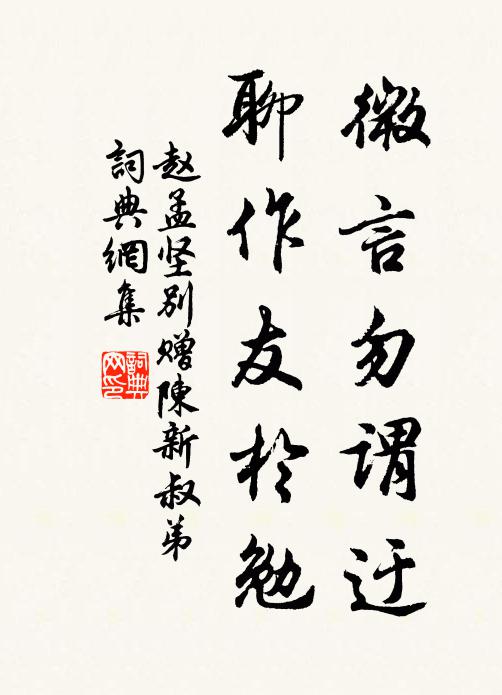 微言勿謂迂
聊作友於勉
赵孟坚别赠陳新叔弟
詞典網集
詞典網印